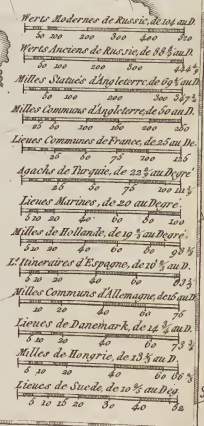 Werts Modernes de Russie, de 104 au D.
50 100 200 300 400 520
Werts Anciens de Russie, de 88
50 100 200 300 400
Milles Statués d'Angleterre, de 69 au D.
50 100 200 300
Milles Communs d'Angleterre, de 50 au D.
25 50 100 150 200 250
Lieues Communes de France, de 25 au De.
25 50 75 100 125
Agachs de Turquie, de 22 ½ au Degré
25 50 75 100
Lieues Marines, de 20 au Degré
5 10 20 40 60 80 100
Milles de Hollande, de 19 au Degré
5 10 20 40 60
Lˢ Itineraires d'Espagne, de 16 au D.
5 10 20 40 60
Milles Communs d'Allemagne, de 15 au D
10 20 40 60 75
Lieues de Danemark, de 14 au D.
5 10 20 40 60
Milles de Hongrie, de 13 au D.
5 10 20 40 60
Lieues de Suede, de 10 au Deg.
5 10 15 20 30 40 52